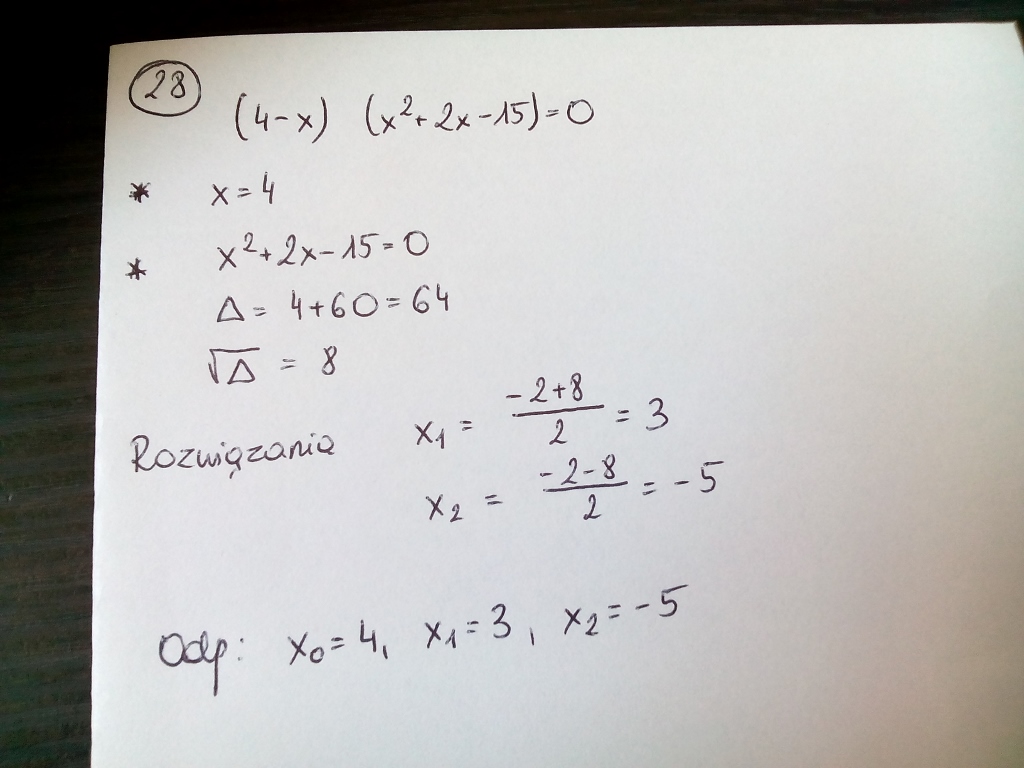 28
(4-x) (x²+2x-15)=0
* x=4
* x²+2x-15=0
Δ= 4+60=64
√Δ = 8
Rozwiązania x₁ = (-2+8)/2 = 3
x₂ = (-2-8)/2 = -5
Odp: x₀=4, x₁=3, x₂=-5